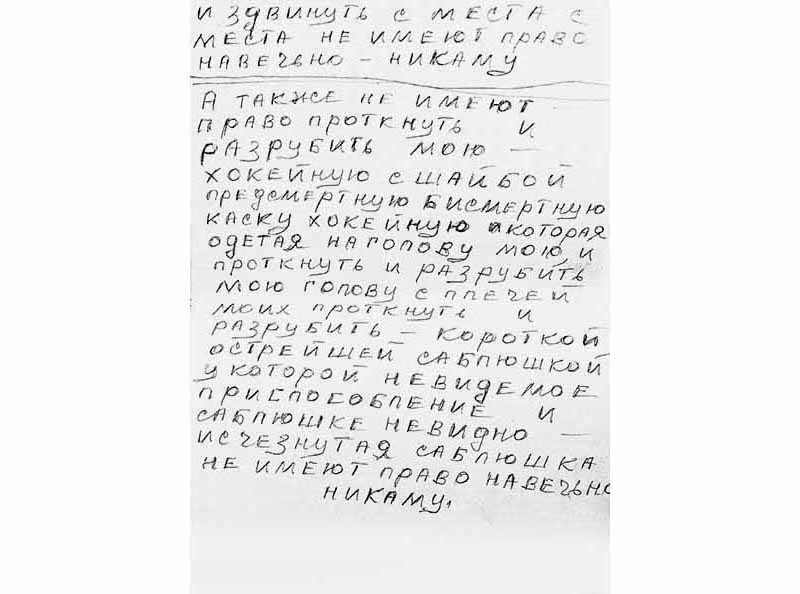 И ЗДВИНУТЬ С МЕСТА С
МЕСТА НЕ ИМЕЮТ ПРАВО
НАВЕЧЬНО – НИКАМУ
А ТАКЖЕ НЕ ИМЕЮТ
ПРАВО ПРОТКНУТЬ И
РАЗРУБИТЬ МОЮ —
ХОКЕЙНУЮ С ШАЙБОЙ
ПРЕДСМЕРТНУЮ БИСМЕРТНУЮ
КАСКУ ХОКЕЙНУЮ КОТОРАЯ
ОДЕТАЯ НАГОЛОВУ МОЮ, И
ПРОТКНУТЬ И РАЗРУБИТЬ
МОЮ ГОЛОВУ С ПЛЕЧЕЙ
МОИХ ПРОТКНУТЬ И
РАЗРУБИТЬ – КОРОТКОЙ
ОСТРЕЙШЕЙ САБЛЮШКОЙ
У КОТОРОЙ НЕВИДЕМОЕ
ПРИСПОСОБЛЕНИЕ И
САБЛЮШКЕ НЕВИДНО —
ИСЧЕЗНУТАЯ САБЛЮШКА
НЕ ИМЕЮТ ПРАВО НАВЕЧЬНО
НИКАМУ.